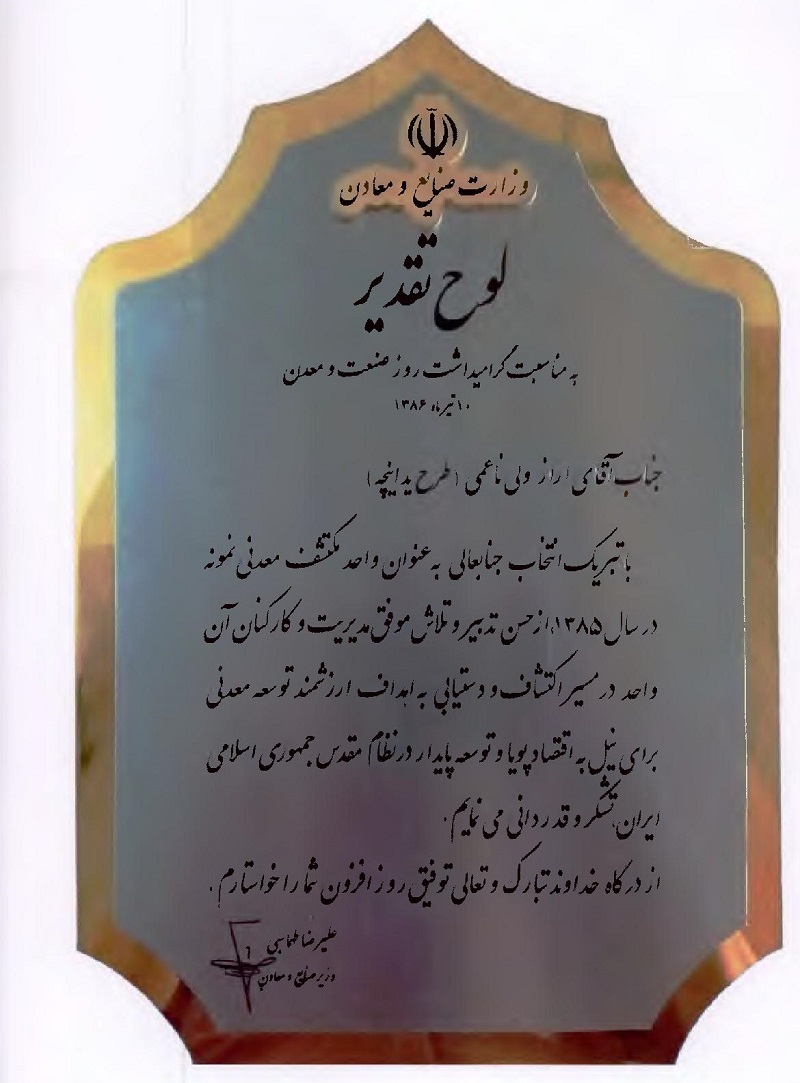 وزارت صنایع و معادن
لوح تقدیر
به مناسبت گرامیداشت روز صنعت و معدن
۱۰ تیرماه ۱۳۸۶
جناب آقای اراز ولی ناعمی (طرح یدانیچه)
با تبریک انتخاب جنابعالی به عنوان واحد مکتشف معدنی نمونه
در سال ۱۳۸۵، از حسن تدبیر و تلاش موفق مدیریت و کارکنان آن
واحد در مسیر اکتشاف و دستیابی به اهداف ارزشمند توسعه معدنی
برای نیل به اقتصاد پویا و توسعه پایدار در نظام مقدس جمهوری اسلامی
ایران، تشکر و قدردانی می نمایم.
از درگاه خداوند تبارک و تعالی توفیق روز افزون شما را خواستارم.
علیرضا طهماسبی
وزیر صنایع و معادن